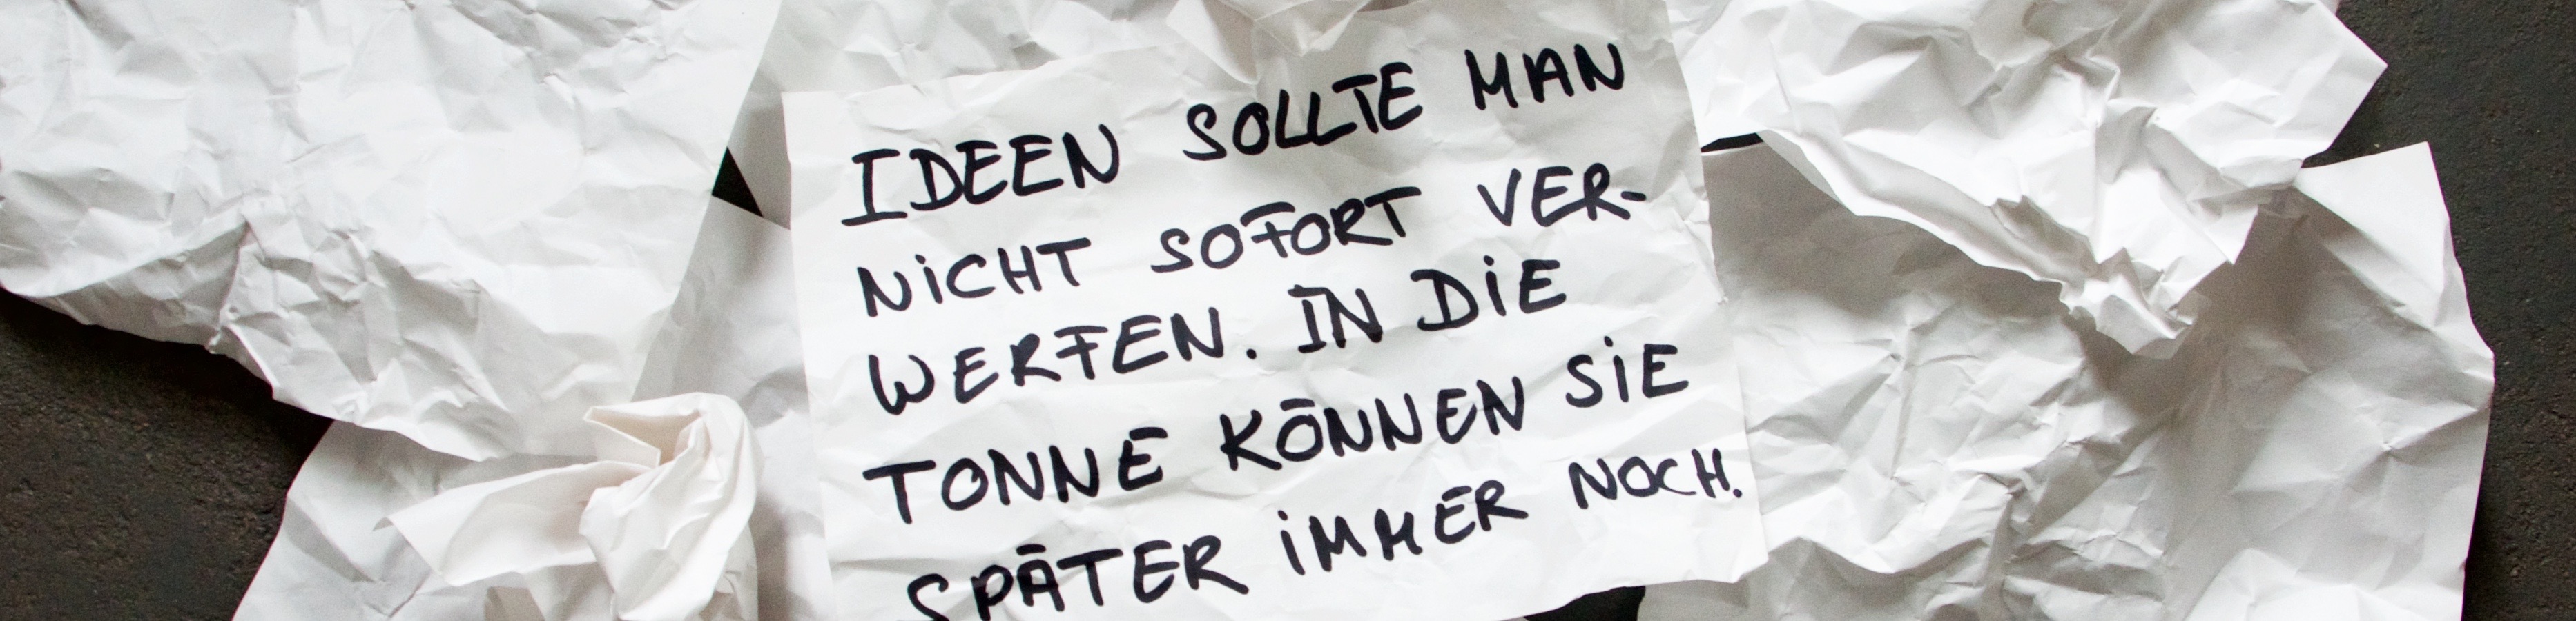 IDEEN SOLLTE MAN
NICHT SOFORT VER-
WERFEN. IN DIE
TONNE KÖNNEN SIE
SPÄTER IMMER NOCH.